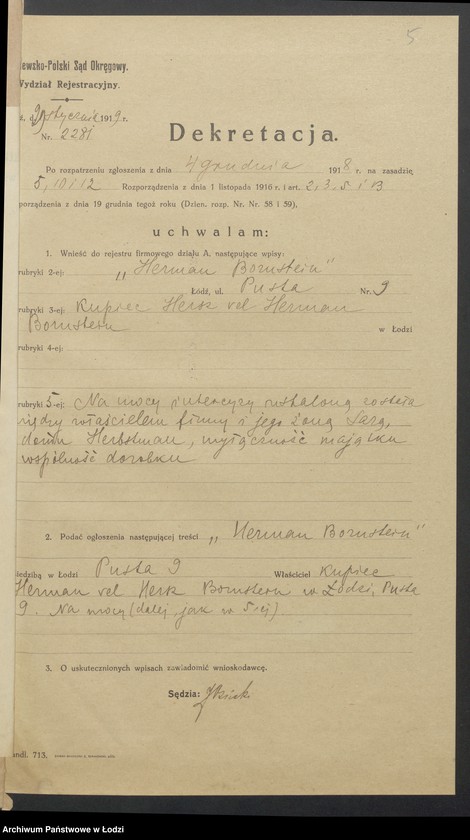 5
lewsko-Polski Sąd Okręgowy.
Wydział Rejestracyjny.
d. 9 stycznia 1919 r.
Nr. 2281
Dekretacja.
Po rozpatrzeniu zgłoszenia z dnia 4 grudnia 1918 r. na zasadzie
5, 10 i 12 Rozporządzenia z dnia 1 listopada 1916 r. i art. 2, 3, 5 i 13
porządzenia z dnia 19 grudnia tegoż roku (Dzien. rozp. Nr. Nr. 58 i 59),
uchwalam:
1. Wnieść do rejestru firmowego działu A. następujące wpisy:
rubryki 2-ej: „Herman Bornstein"
Łódź, ul. Pusta Nr. 9
rubryki 3-ej: Kupiec Hersk vel Herman
Bornstein w Łodzi
rubryki 4-ej:
rubryki 5-ej: Na mocy intercyzy ustaloną została
między właścicielem firmy i jego żoną Sarą,
domu Herbstman, wyłączność majątku
wspólność dorobku
2. Podać ogłoszenia następującej treści „Herman Bornstein"
iedzibą w Łodzi Pusta 9 Właściciel Kupiec
Herman vel Hersk Bornstein w Łodzi, Pusta
9. Na mocy (dalej jak w 5-ej)
3. O uskutecznionych wpisach zawiadomić wnioskodawcę.
Sędzia:
andl. 713.
Archiwum Państwowe w Łodzi